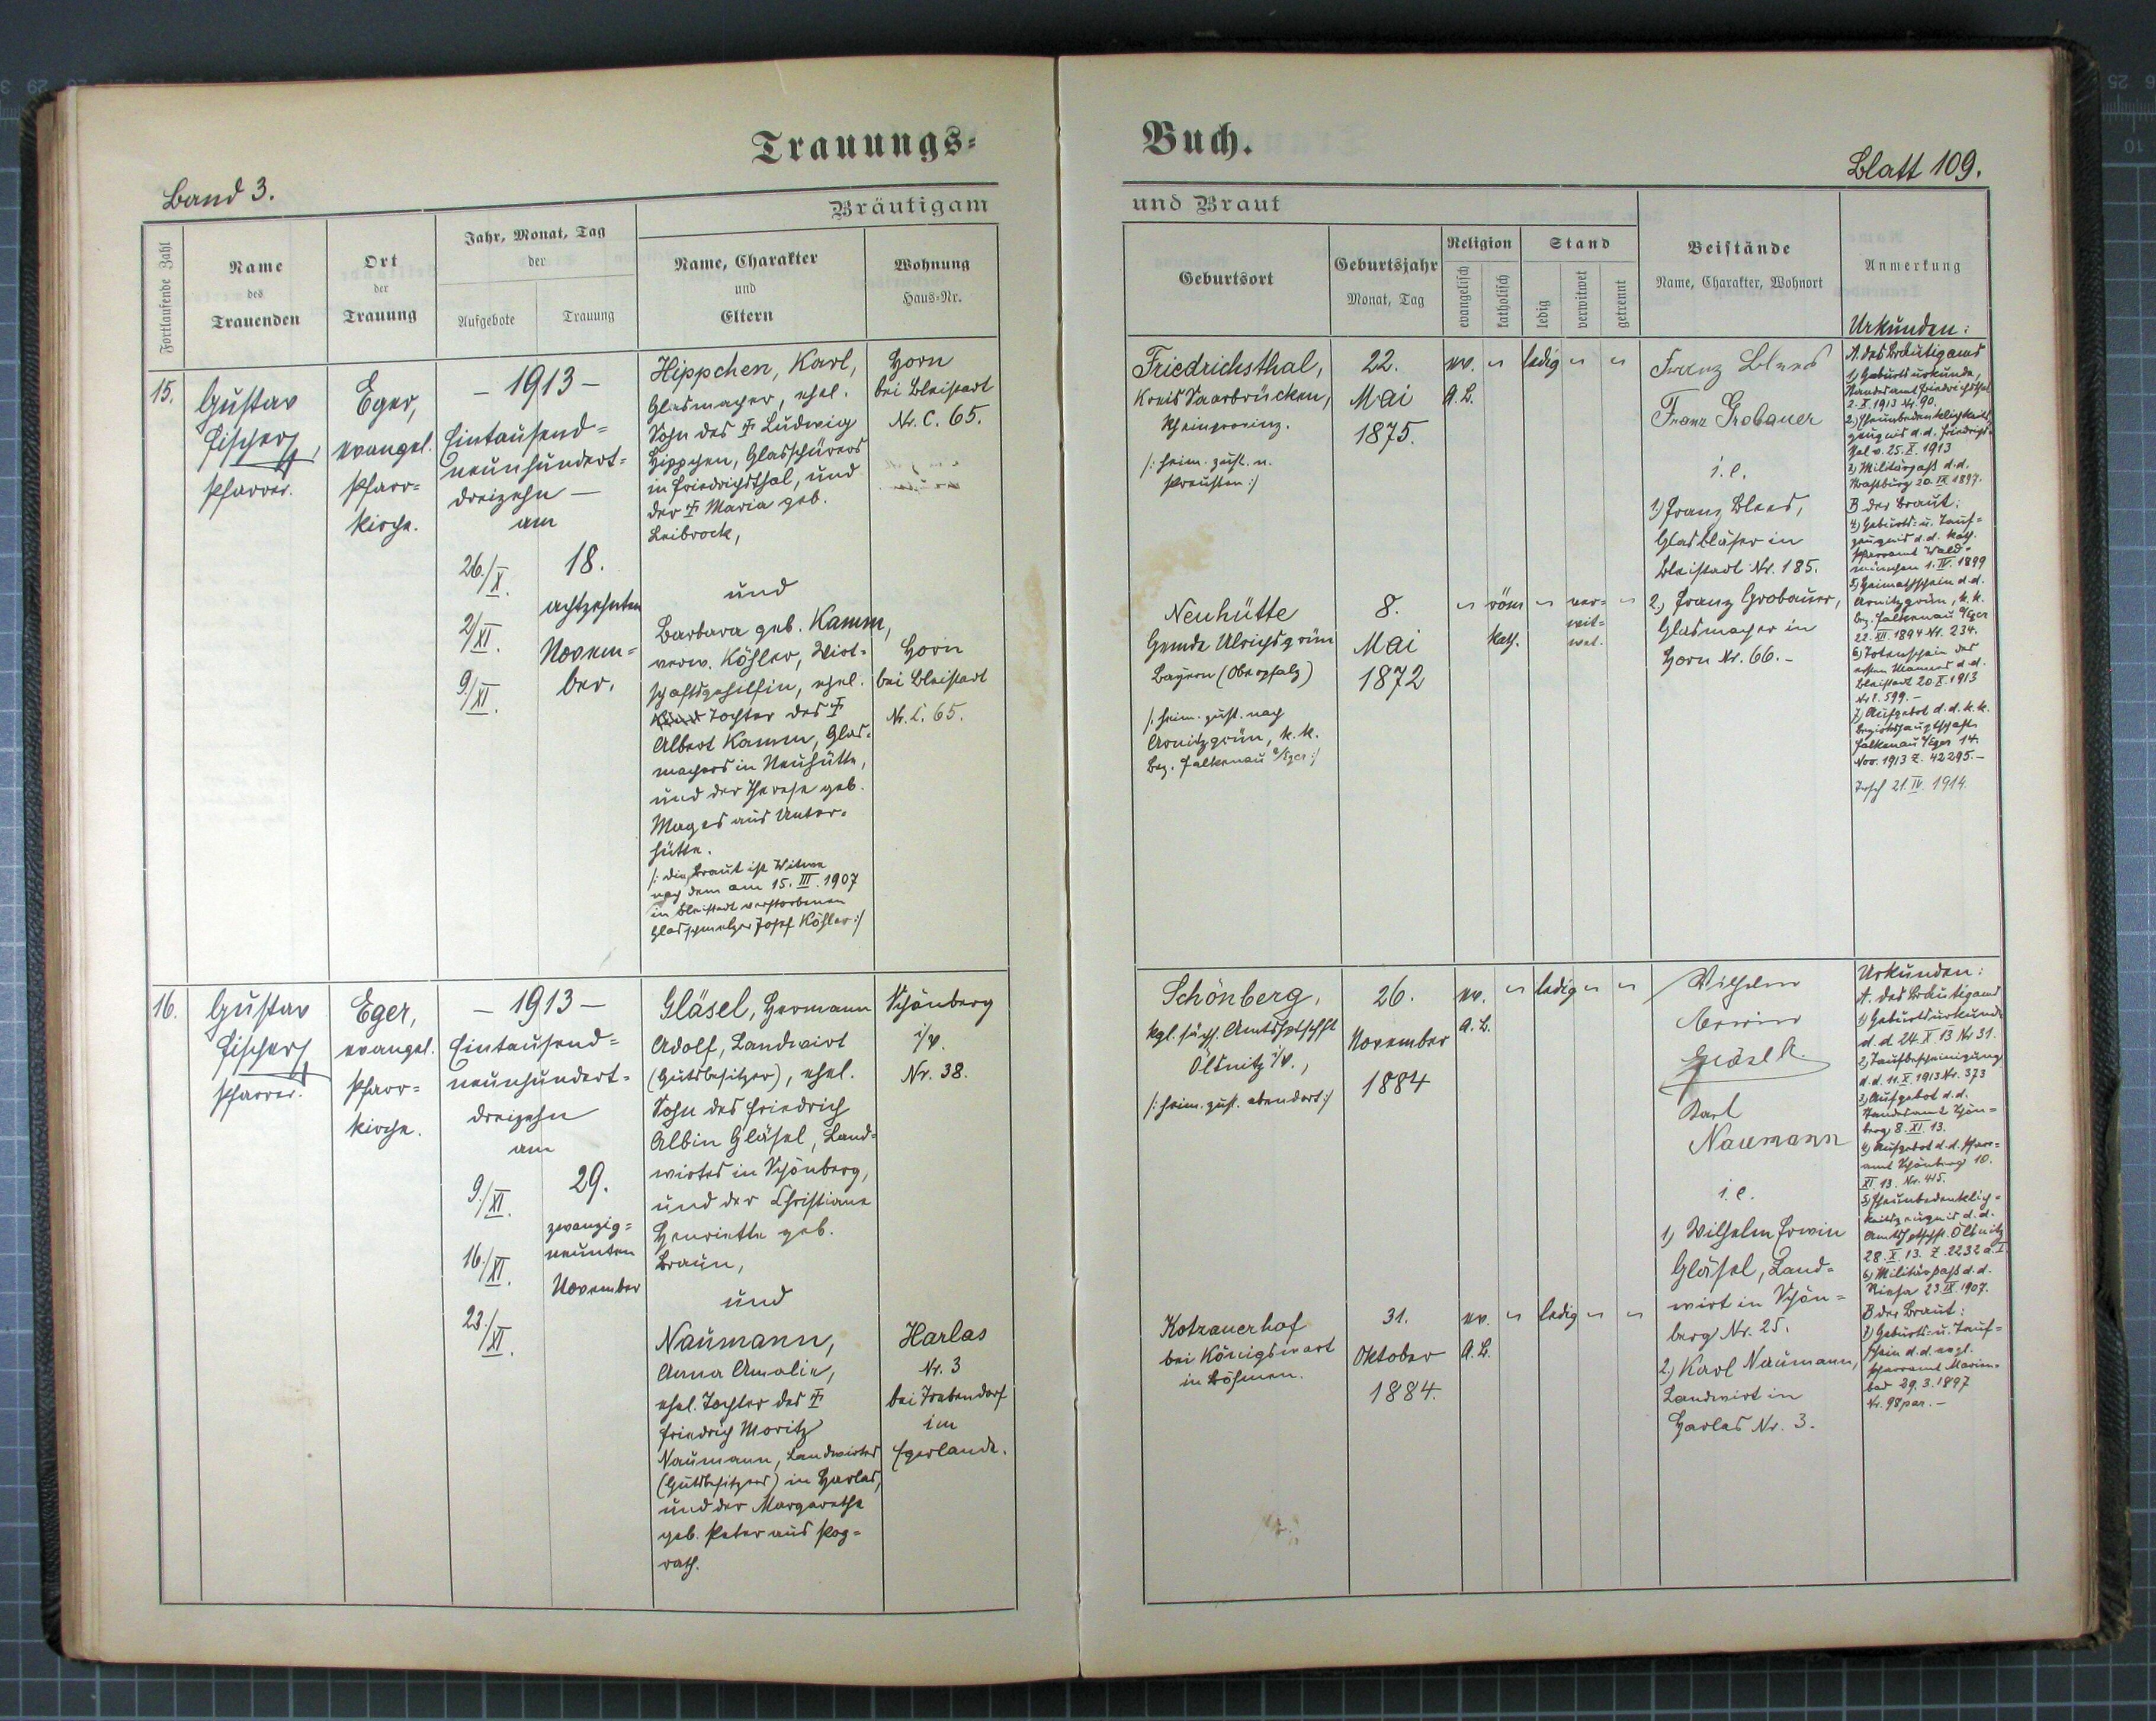 Trauungs-
Buch.
Band 3.
Blatt 109.
Bräutigam
und Braut
Fortlaufende Zahl
Name
des
Trauenden
Ort
der
Trauung
Jahr, Monat, Tag
der
Aufgebote
Trauung
Name, Charakter
und
Eltern
Wohnung
Haus-Nr.
Geburtsort
Geburtsjahr
Monat, Tag
Religion
evangelisch
katholisch
Stand
ledig
verwitwet
getrennt
Beistände
Name, Charakter, Wohnort
Anmerkung
15.
Gustav
Fischer,
Pfarrer.
Eger,
evangel.
Pfarr-
kirche.
– 1913 –
Eintausend-
neunhundert-
dreizehn –
am
26./X.
2./XI.
9./XI.
18.
achtzehnten
Novem-
ber.
Hippchen, Karl,
Glasmacher, ehel.
Sohn des † Ludwig
Hippchen, Glasschürers
in Friedrichsthal, und
der † Maria geb.
Leibrock,
und
Barbara geb. Kamm,
verw. Köhler, Wirt-
schaftsgehilfin, ehel.
Tochter des †
Albert Kamm, Glas-
machers in Neuhütte,
und der Therese geb.
Mages aus Unter-
hütte.
/: die Braut ist Witwe
nach dem am 15. III. 1907
in Bleistadt verstorbenen
Glasschmelzer Josef Köhler :/
Horn
bei Bleistadt
Nr. C. 65.
Horn
bei Bleistadt
Nr. C. 65.
Friedrichsthal,
Kreis Saarbrücken,
Rheinprovinz.
/: heim. zust. n.
Preußen :/
22.
Mai
1875.
ev.
A.B.
"
ledig
"
"
Neuhütte
Gemde Ulrichsgrün
Bayern (Oberpfalz)
/: heim. zust. nach
Arnitzgrün, k.k.
Bez. Falkenau a/Eger :/
8.
Mai
1872
"
röm
kath.
"
ver-
wit-
wet.
"
Franz Blees
Franz Grobauer
i.e.
1.) Franz Blees,
Glasbläser in
Bleistadt Nr. 185.
2.) Franz Grobauer,
Glasmacher in
Horn Nr. 66. –
Urkunden:
A. des Bräutigams
1.) Geburtsurkunde,
Standesamt Friedrichsthal
2. X. 1913 Nr. 90.
2.) Eheunbedenklichkeits-
zeugnis d.d. Friedrichs-
thal v. 25. X. 1913
3.) Militärpaß d.d.
Straßburg 20. IX 1897.
B der Braut:
4.) Geburts- u. Tauf-
zeugnis d.d. kath.
Pfarramt Wald-
münchen 1. IV. 1899
5.) Heimatschein d.d.
Arnitzgrün, k.k.
Bez. Falkenau a/Eger
22. XII. 1894 Nr. 234.
6.) Totenschein des
ersten Mannes d.d.
Bleistadt 20. X. 1913
Nr. 599. –
7.) Aufgebot d.d. k.k.
Bezirkshauptschaft
Falkenau a/Eger 14.
Nov. 1913 Z. 42295. –
21. IV. 1914.
16.
Gustav
Fischer,
Pfarrer.
Eger,
evangel.
Pfarr-
kirche.
– 1913 –
Eintausend-
neunhundert-
dreizehn
am
9./XI.
16./XI.
23./XI.
29.
zwanzig-
neunten
November
Gläsel, Hermann
Adolf, Landwirt
(Gutsbesitzer), ehel.
Sohn des Friedrich
Albin Gläsel, Land-
wirtes in Schönberg,
und der Christiane
Henriette geb.
Braun,
und
Naumann,
Anna Amalie,
ehel. Tochter des †
Friedrich Moritz
Naumann, Landwirtes
(Gutsbesitzers) in Harlas,
und der Margarethe
geb. Peter aus Pog-
rath.
Schönberg
i/V.
Nr. 38.
Harlas
Nr. 3
bei Trebendorf
im
Egerlande.
Schönberg,
kgl. sächs. Amtshptschft
Ölsnitz i/V.,
/: heim. zust. ebendort :/
26.
November
1884
ev.
A.B.
"
ledig
"
"
Kotzauerhof
bei Königswart
in Böhmen.
31.
Oktober
1884.
ev.
A.B.
"
ledig
"
"
Wilhelm
Erwin
Gläsel
Karl
Naumann
i.e.
1.) Wilhelm Erwin
Gläsel, Land-
wirt in Schön-
berg Nr. 25.
2.) Karl Naumann,
Landwirt in
Harlas Nr. 3.
Urkunden:
A. des Bräutigams
1.) Geburtsurkunde
d.d. 24. X. 13 Nr 31.
2.) Taufbescheinigung
d.d. 11. X. 1913 Nr. 373
3.) Aufgebot d.d.
Standesamt Schön-
berg 8. XI. 13.
4.) Aufgebot d.d. Pfarr-
amt Schönberg 10.
XI. 13. Nr. 415.
5.) Eheunbedenklich-
keitszeugnis d.d.
Amtshptschft. Ölsnitz
28. X. 13. Z. 2232 a. I.
6.) Militärpaß d.d.
Riesa 23. IX. 1907.
B der Braut:
7.) Geburts- u. Tauf-
schein d.d. evgl.
Pfarramt Marien-
bad 29. 3. 1897
Nr. 98 par. –